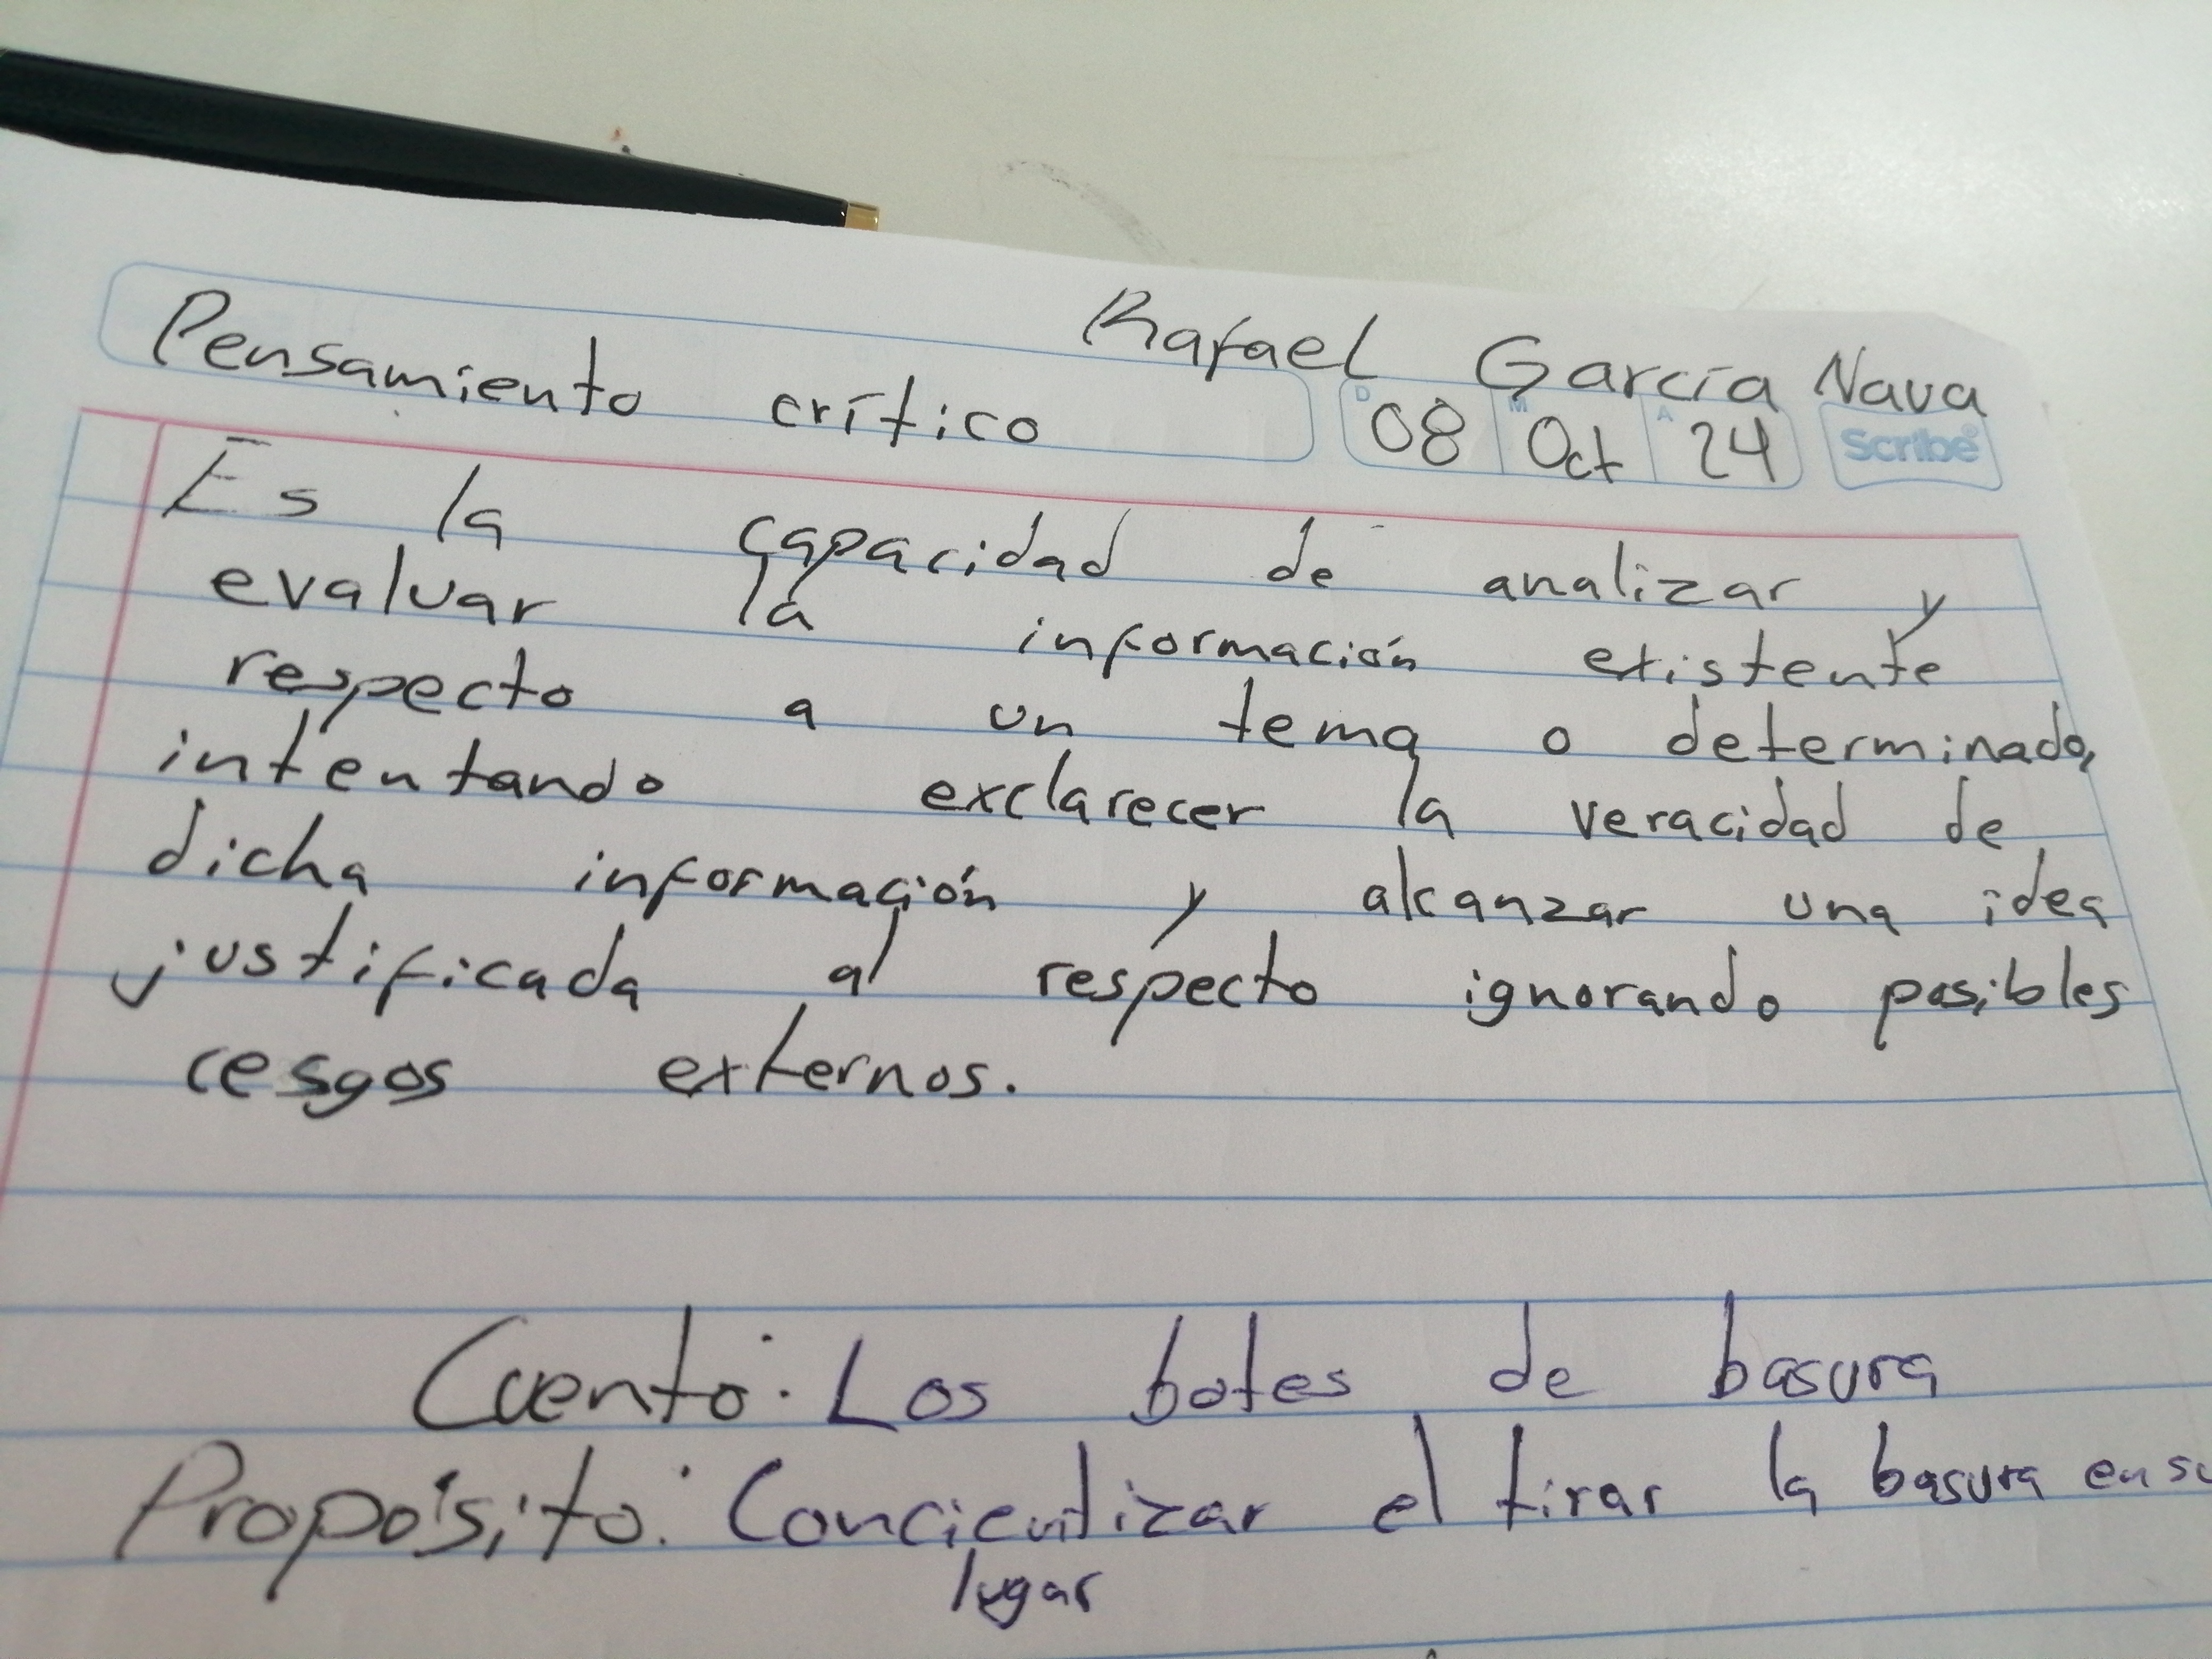 Rafael García Nava
Pensamiento crítico
D 08 M Oct A 24 Scribe
Es la capacidad de analizar y
evaluar la información existente
respecto a un tema o determinado,
intentando exclarecer la veracidad de
dicha información y alcanzar una idea
justificada al respecto ignorando posibles
cesgos externos.
Cuento: Los botes de basura
Propósito: Concientizar el tirar la basura en su
lugar